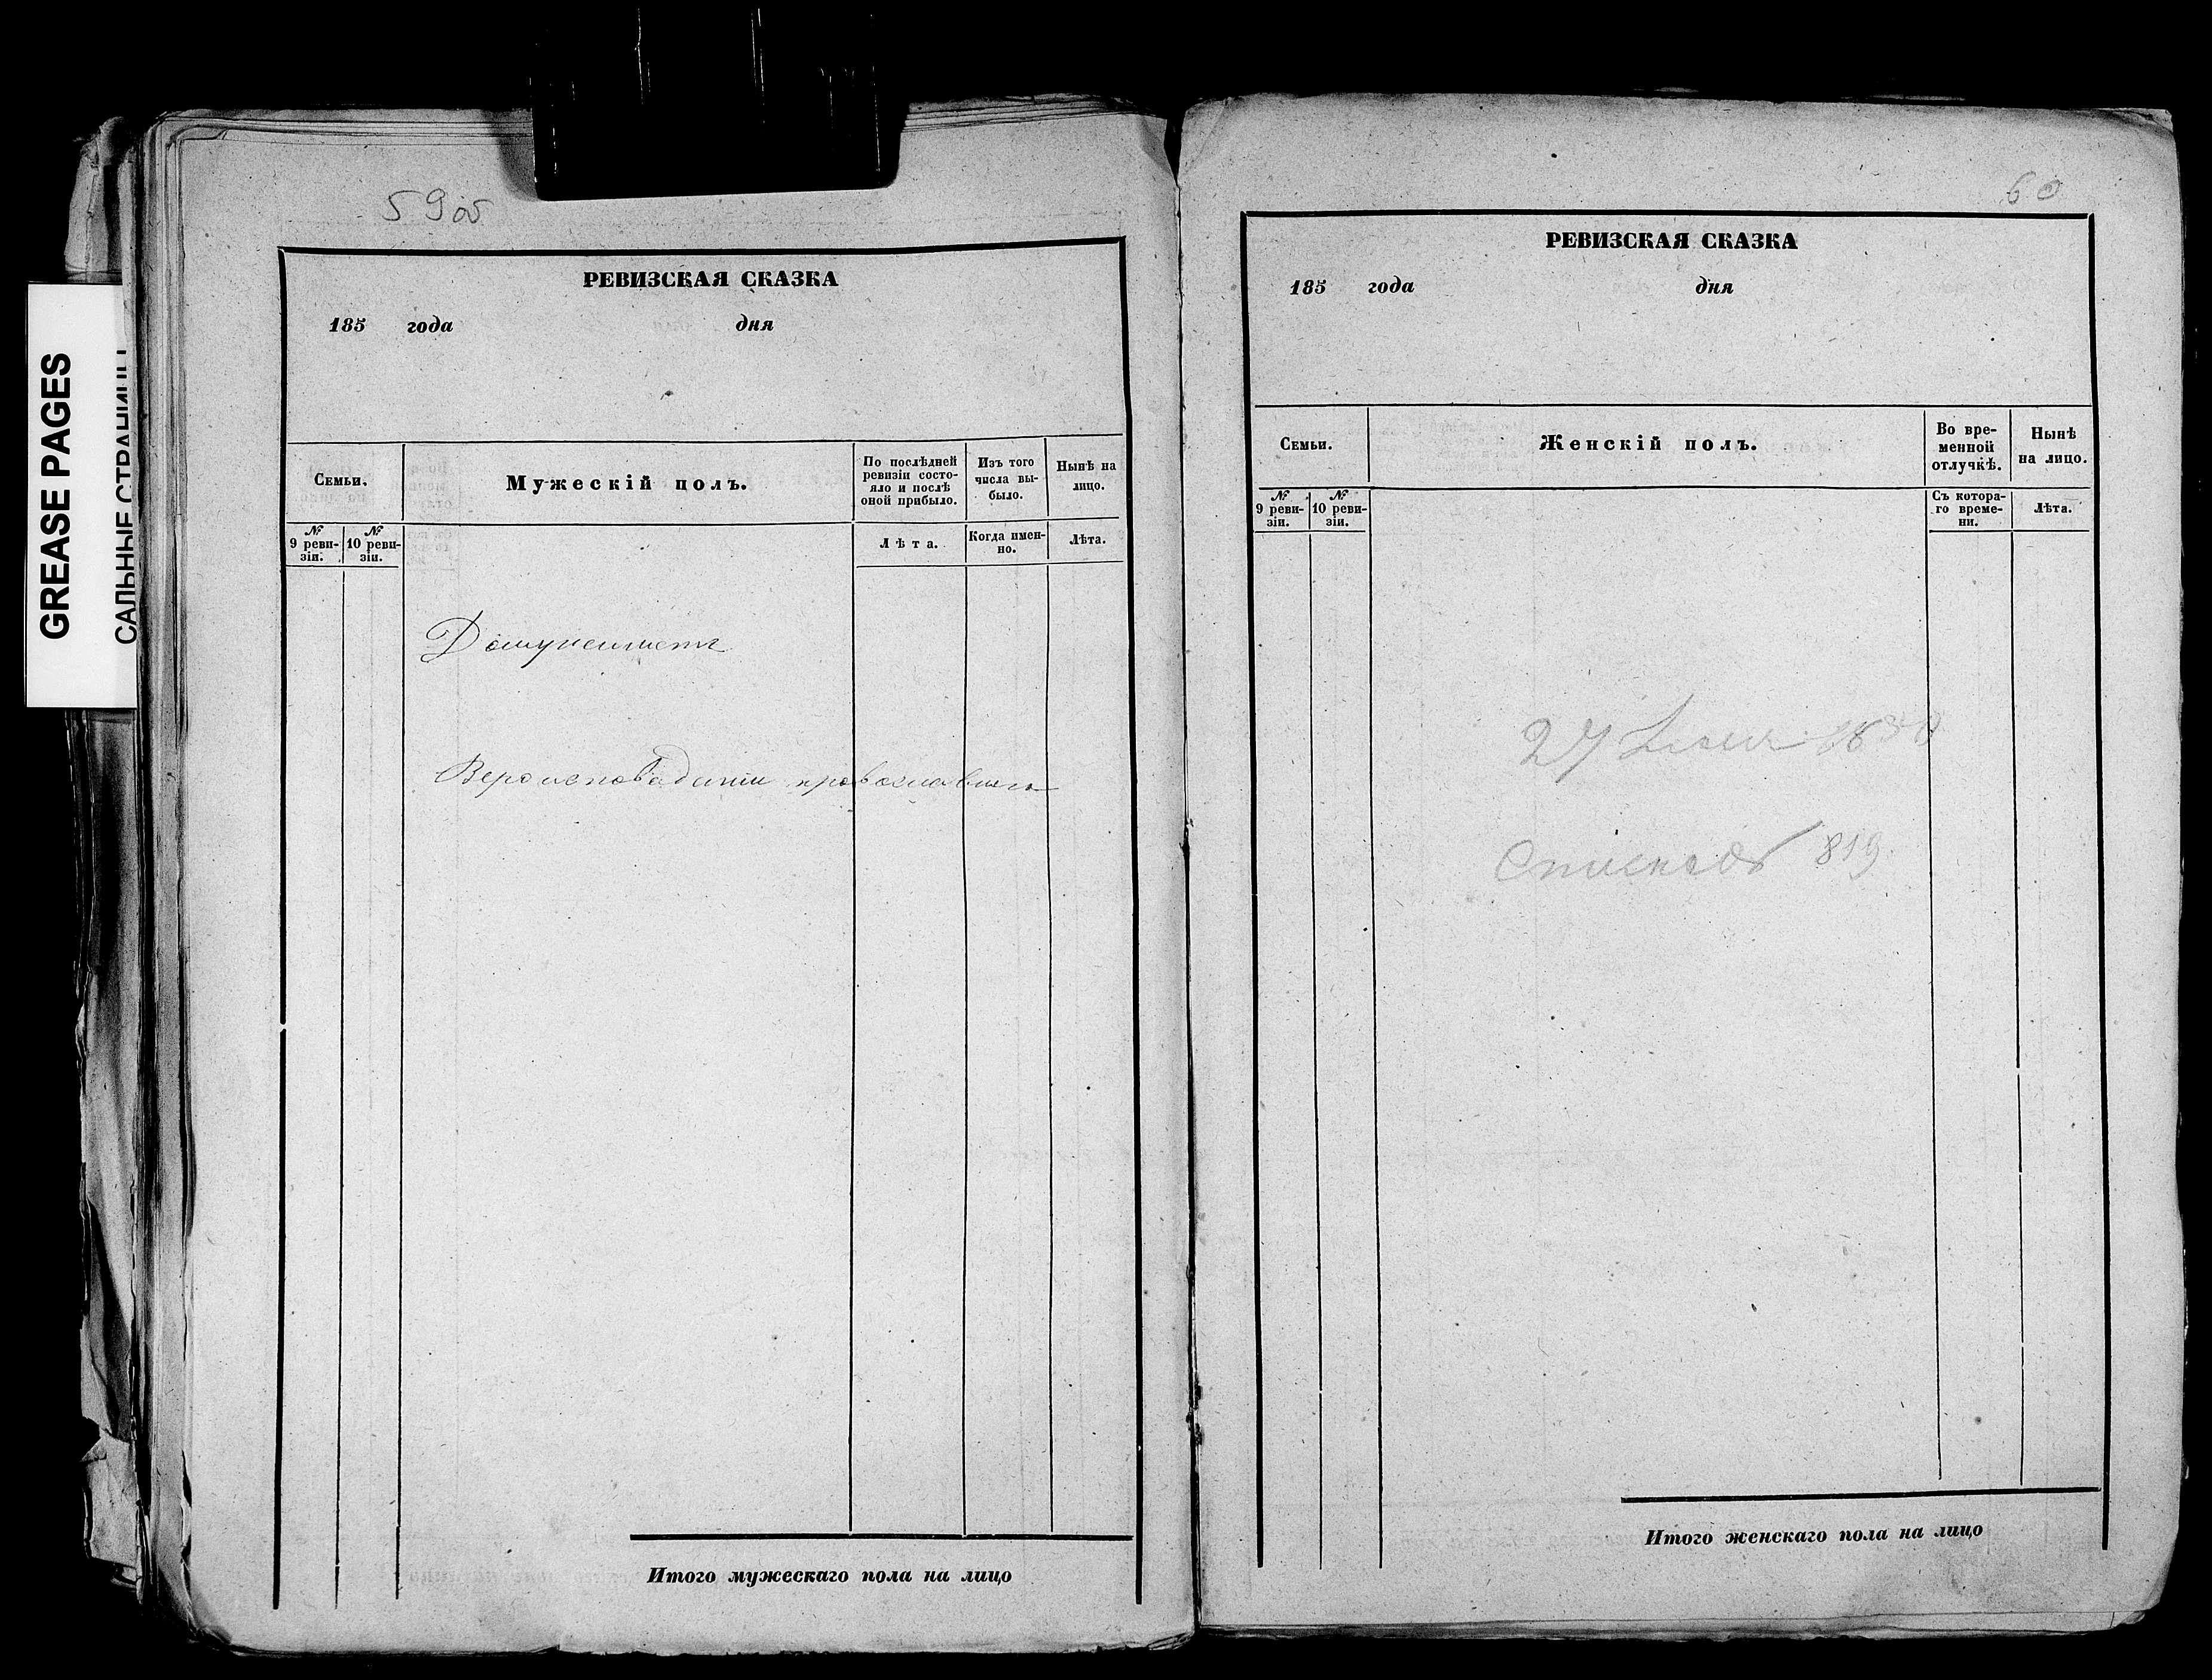 GREASE PAGES
САЛЬНЫЕ СТРАНИЦЫ
59об
РЕВИЗСКАЯ СКАЗКА
185 года дня
Семьи.
Мужескій полъ.
По послѣдней
ревизіи состо-
яло и послѣ
оной прибыло.
Изъ того
числа вы-
было.
Нынѣ на
лицо.
№
9 реви-
зіи.
№
10 реви-
зіи.
Лѣта.
Когда имен-
но.
Лѣта.
Вероисповѣданіи православнаго
Итого мужескаго пола на лицо
60
РЕВИЗСКАЯ СКАЗКА
185 года дня
Семьи.
Женскій полъ.
Во вре-
менной
отлучкѣ.
Нынѣ
на лицо.
№
9 реви-
зіи.
№
10 реви-
зіи.
Съ котора-
го време-
ни.
Лѣта.
27
819
Итого женскаго пола на лицо